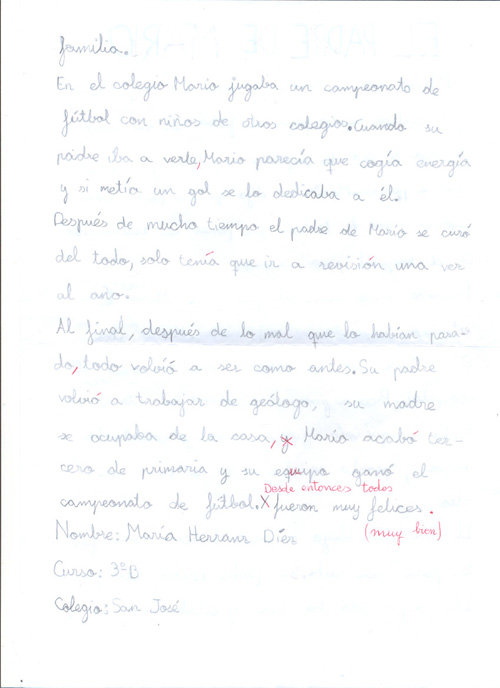 familia.
En el colegio Mario jugaba un campeonato de
fútbol con niños de otros colegios. Cuando su
padre iba a verle, Mario parecía que cogía energía
y si metía un gol se lo dedicaba a él.
Después de mucho tiempo el padre de Mario se curó
del todo, solo tenía que ir a revisión una vez
al año.
Al final, después de lo mal que lo habían pasa-
do, todo volvió a ser como antes. Su padre
volvió a trabajar de geólogo, su madre
se ocupaba de la casa, y Mario acabó ter-
cero de primaria y su equipo ganó el
Desde entonces todos
campeonato de fútbol. X fueron muy felices.
Nombre: María Herranz Díez
(muy bien)
Curso: 3ºB
Colegio: San José